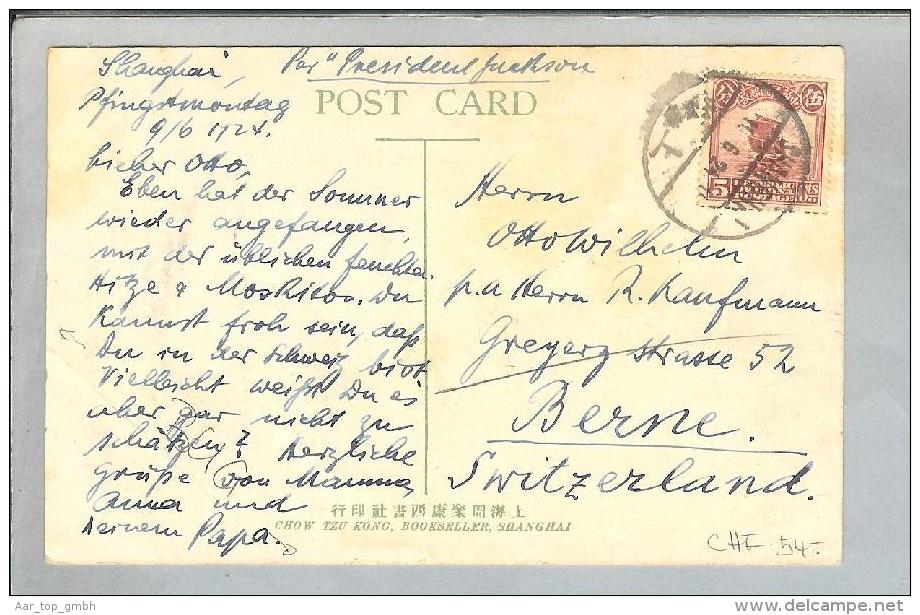 Shanghai, Per "President Jackson
POST CARD
Pfingstmontag
9/6 1924.
Lieber Otto,
Eben hat der Sommer
wieder angefangen,
mit der üblichen feuchten
Hitze & Moskitos. Du
kannst froh sein, daß
Du in der Schweiz bist
Vielleicht weißt Du es
aber gar nicht zu
schätzen? Herzliche
Grüße von Mamma,
Anna und
Deinem Papa.
Herrn
Otto Wilhelm
p.a Herrn R. Kaufmann
Greyerz strasse 52
Berne.
Switzerland.
行印社書西康際開海上
CHOW TZU KONG, BOOKSELLER, SHANGHAI
伍 伍
5
CHF 54.-
Aar_top_gmbh
www.delcampe.net